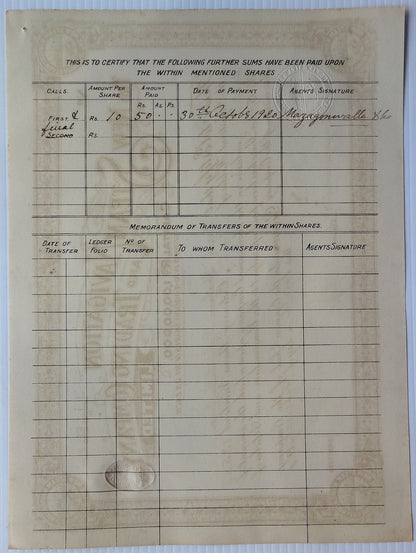 THIS IS TO CERTIFY THAT THE FOLLOWING FURTHER SUMS HAVE BEEN PAID UPON
THE WITHIN MENTIONED SHARES
CALLS. AMOUNT PER SHARE AMOUNT PAID DATE OF PAYMENT AGENTS SIGNATURE
Rs. As. Ps.
FIRST & Rs. 10 50 . . 30th October 1920 Mazagonwalla & Co
final
SECOND Rs.
MEMORANDUM OF TRANSFERS OF THE WITHIN SHARES.
DATE OF TRANSFER LEDGER FOLIO No OF TRANSFER TO WHOM TRANSFERRED AGENTS SIGNATURE